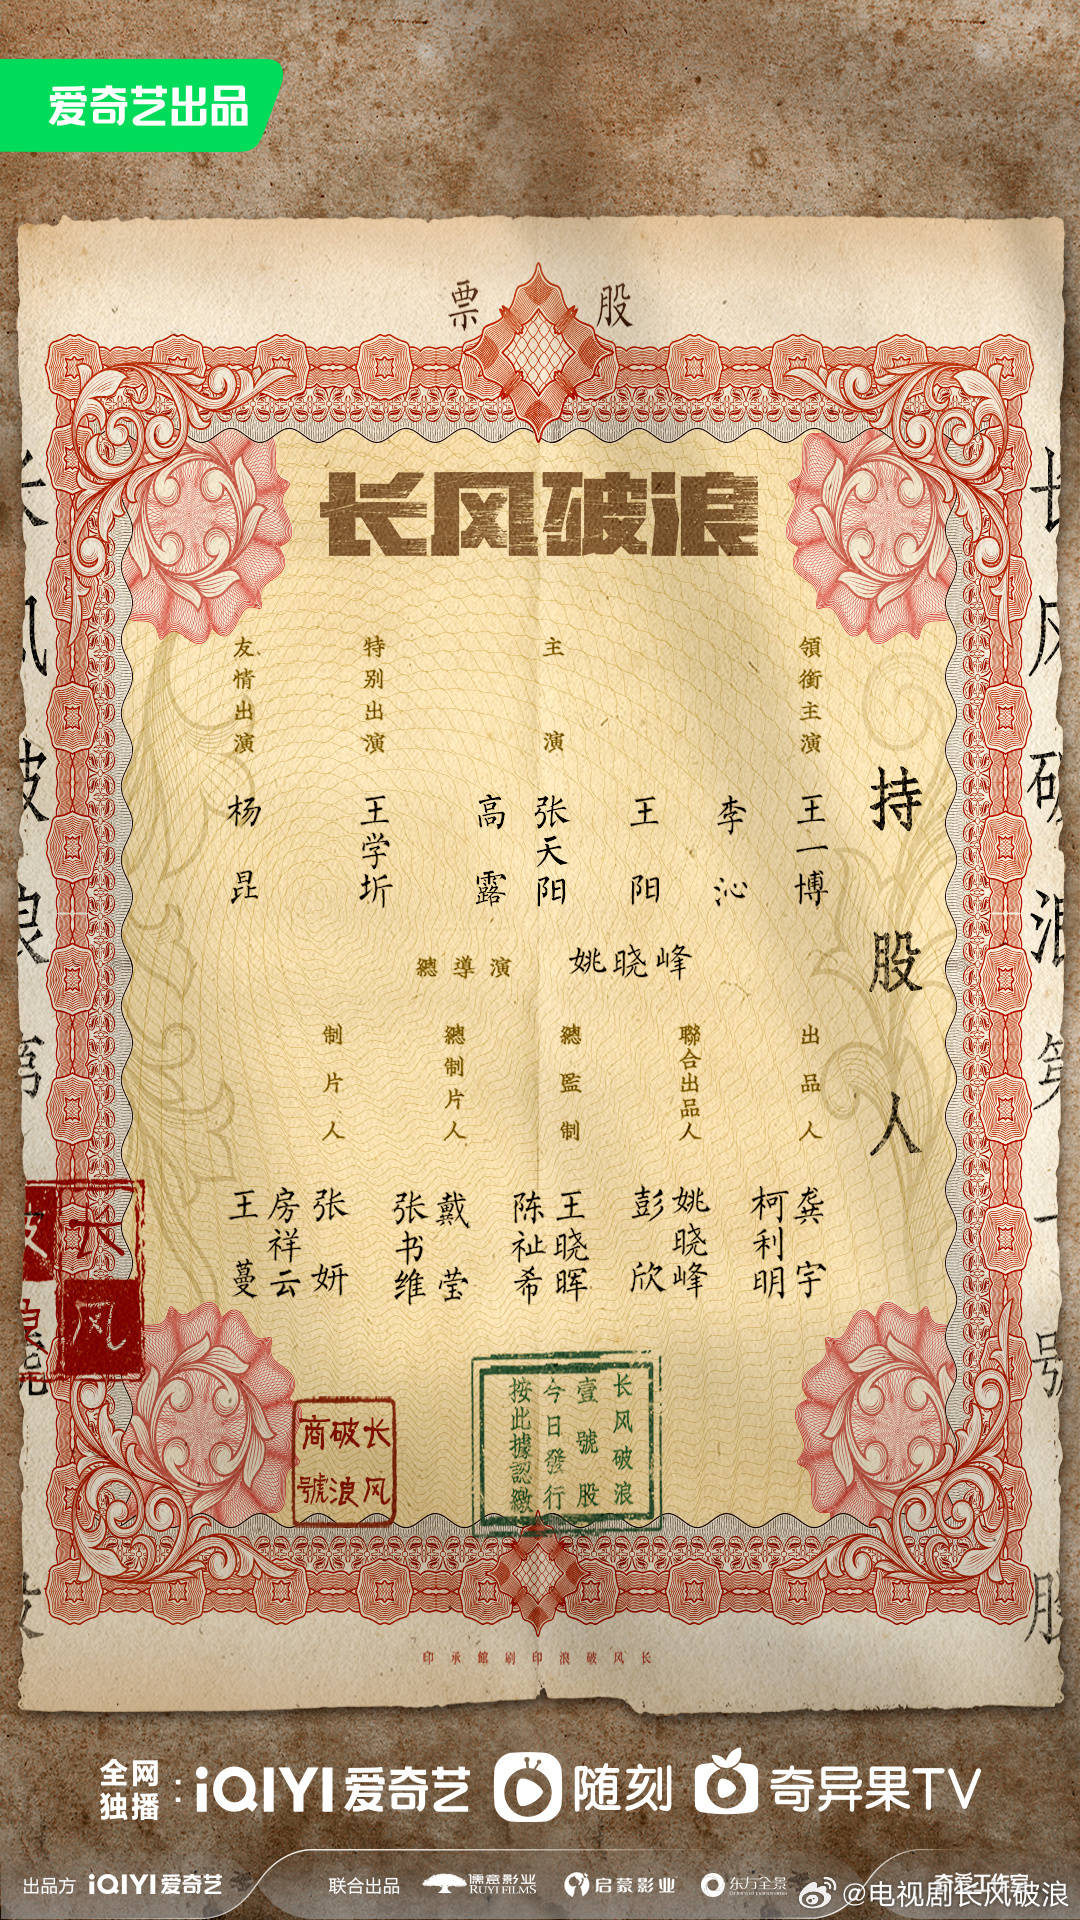 爱奇艺出品
股票
长风破浪
领衔主演
王一博
主演
李沁
王阳
张天阳
高露
特别出演
王学圻
友情出演
杨昆
持股人
總導演 姚晓峰
出品人
龚宇
柯利明
聯合出品人
姚晓峰
彭欣
總監制
王晓晖
陈祉希
總制片人
戴莹
张书维
制片人
张妍
房祥云
王蔓
长风破浪
壹號股
今日發行
按此據認繳
长风
破浪
商號
长风破浪第一號股
长风
破浪
长风破浪印刷館承印
全网独播:iQIYI爱奇艺 随刻 奇异果TV
出品方 iQIYI爱奇艺 联合出品 儒意影业 RUYI FILMS 启蒙影业 东方全景
@电视剧长风破浪